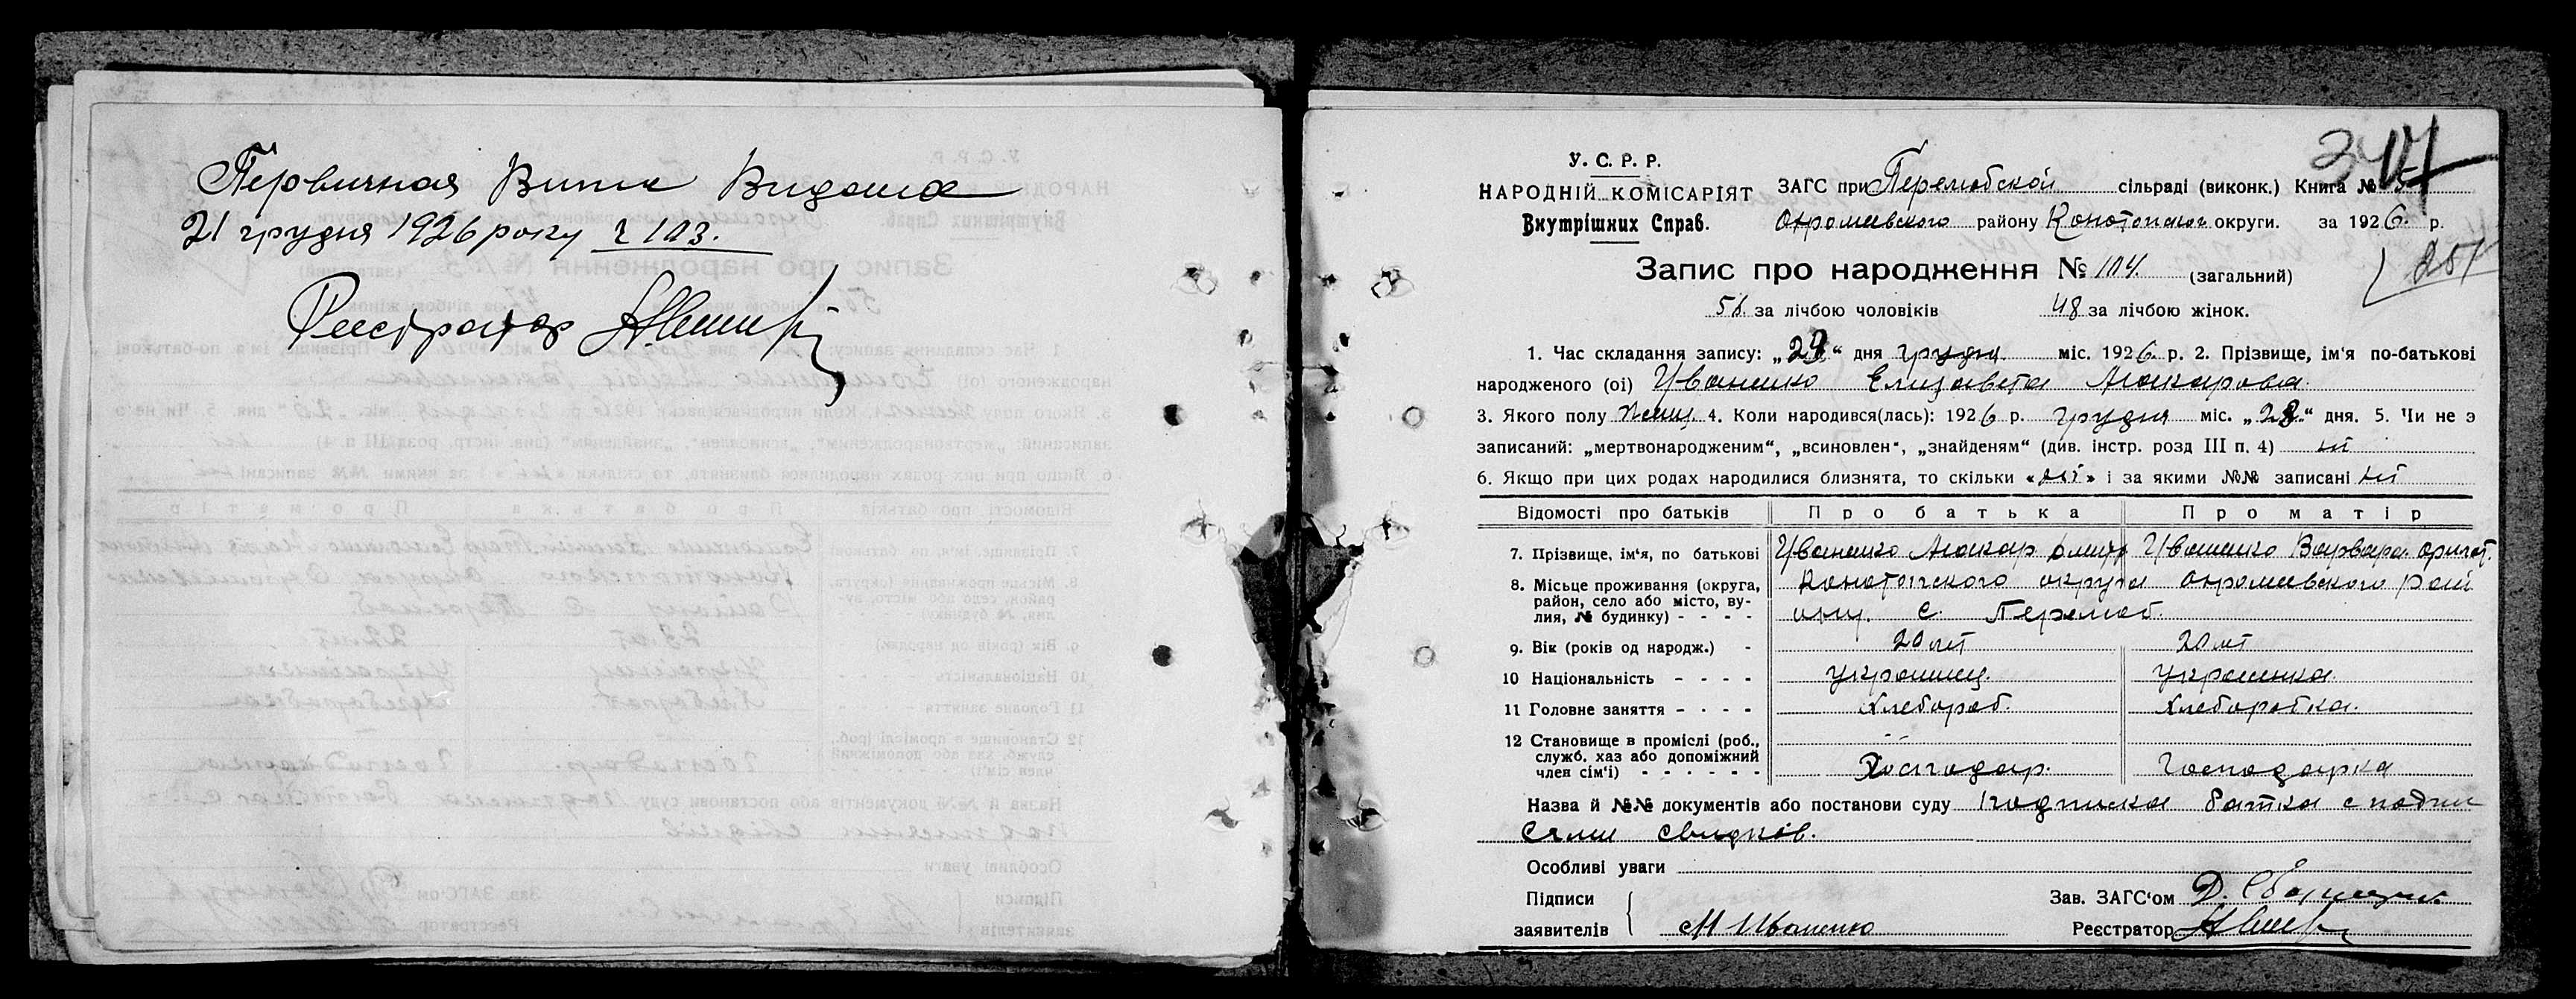 Первичная Випис Видана
21 грудня 1926 року г 103.
Реєстратор
У. С. Р. Р.
НАРОДНІЙ КОМІСАРІЯТ
Внутрішних Справ.
ЗАГС при Перелюбской сільраді (виконк.) Книга №
района Конотопского округи. за 1926 р.
Запис про народження № 104 (загальний)
56 за лічбою чоловіків 48 за лічбою жінок.
1. Час складання запису: „29“ дня грудня міс. 1926 р. 2. Прізвище, ім'я по-батькові
народженого (ої) Иваненко Елизавета Макарова
3. Якого полу женщ. 4. Коли народився(лась): 1926 р. грудня міс. „28“ дня. 5. Чи не э
записаний: „мертвонародженим“, „всиновлен“, „знайденям“ (див. інстр. розд III п. 4) ні
6. Якщо при цих родах народилися близнята, то скільки «ні» і за якими №№ записані ні
Відомості про батьків Про батька Про матір
7. Прізвище, ім'я, по батькові Иваненко Макар Дмитр Иваненко Варвара
8. Місьце проживання (округа, район, село або місто, вулия, № будинку) - - - - Конотопского округа
с. Перелюб.
9. Вік (років од народж.) - 20 лѣт 20 лѣт
10 Національність - - - - украинец. украинка.
11 Головне заняття - - - - Хлебороб. Хлеборобка.
12 Становище в промислі (роб., служб. хаз або допоміжний член сім'ї) - - - - - - Хосподар. Господарка
Назва й №№ документів або постанови суду подписка батка с подпи
сями свидков.
Особливі уваги
Підписи заявителів М Иваненко
Зав. ЗАГС'ом Д.
Реєстратор